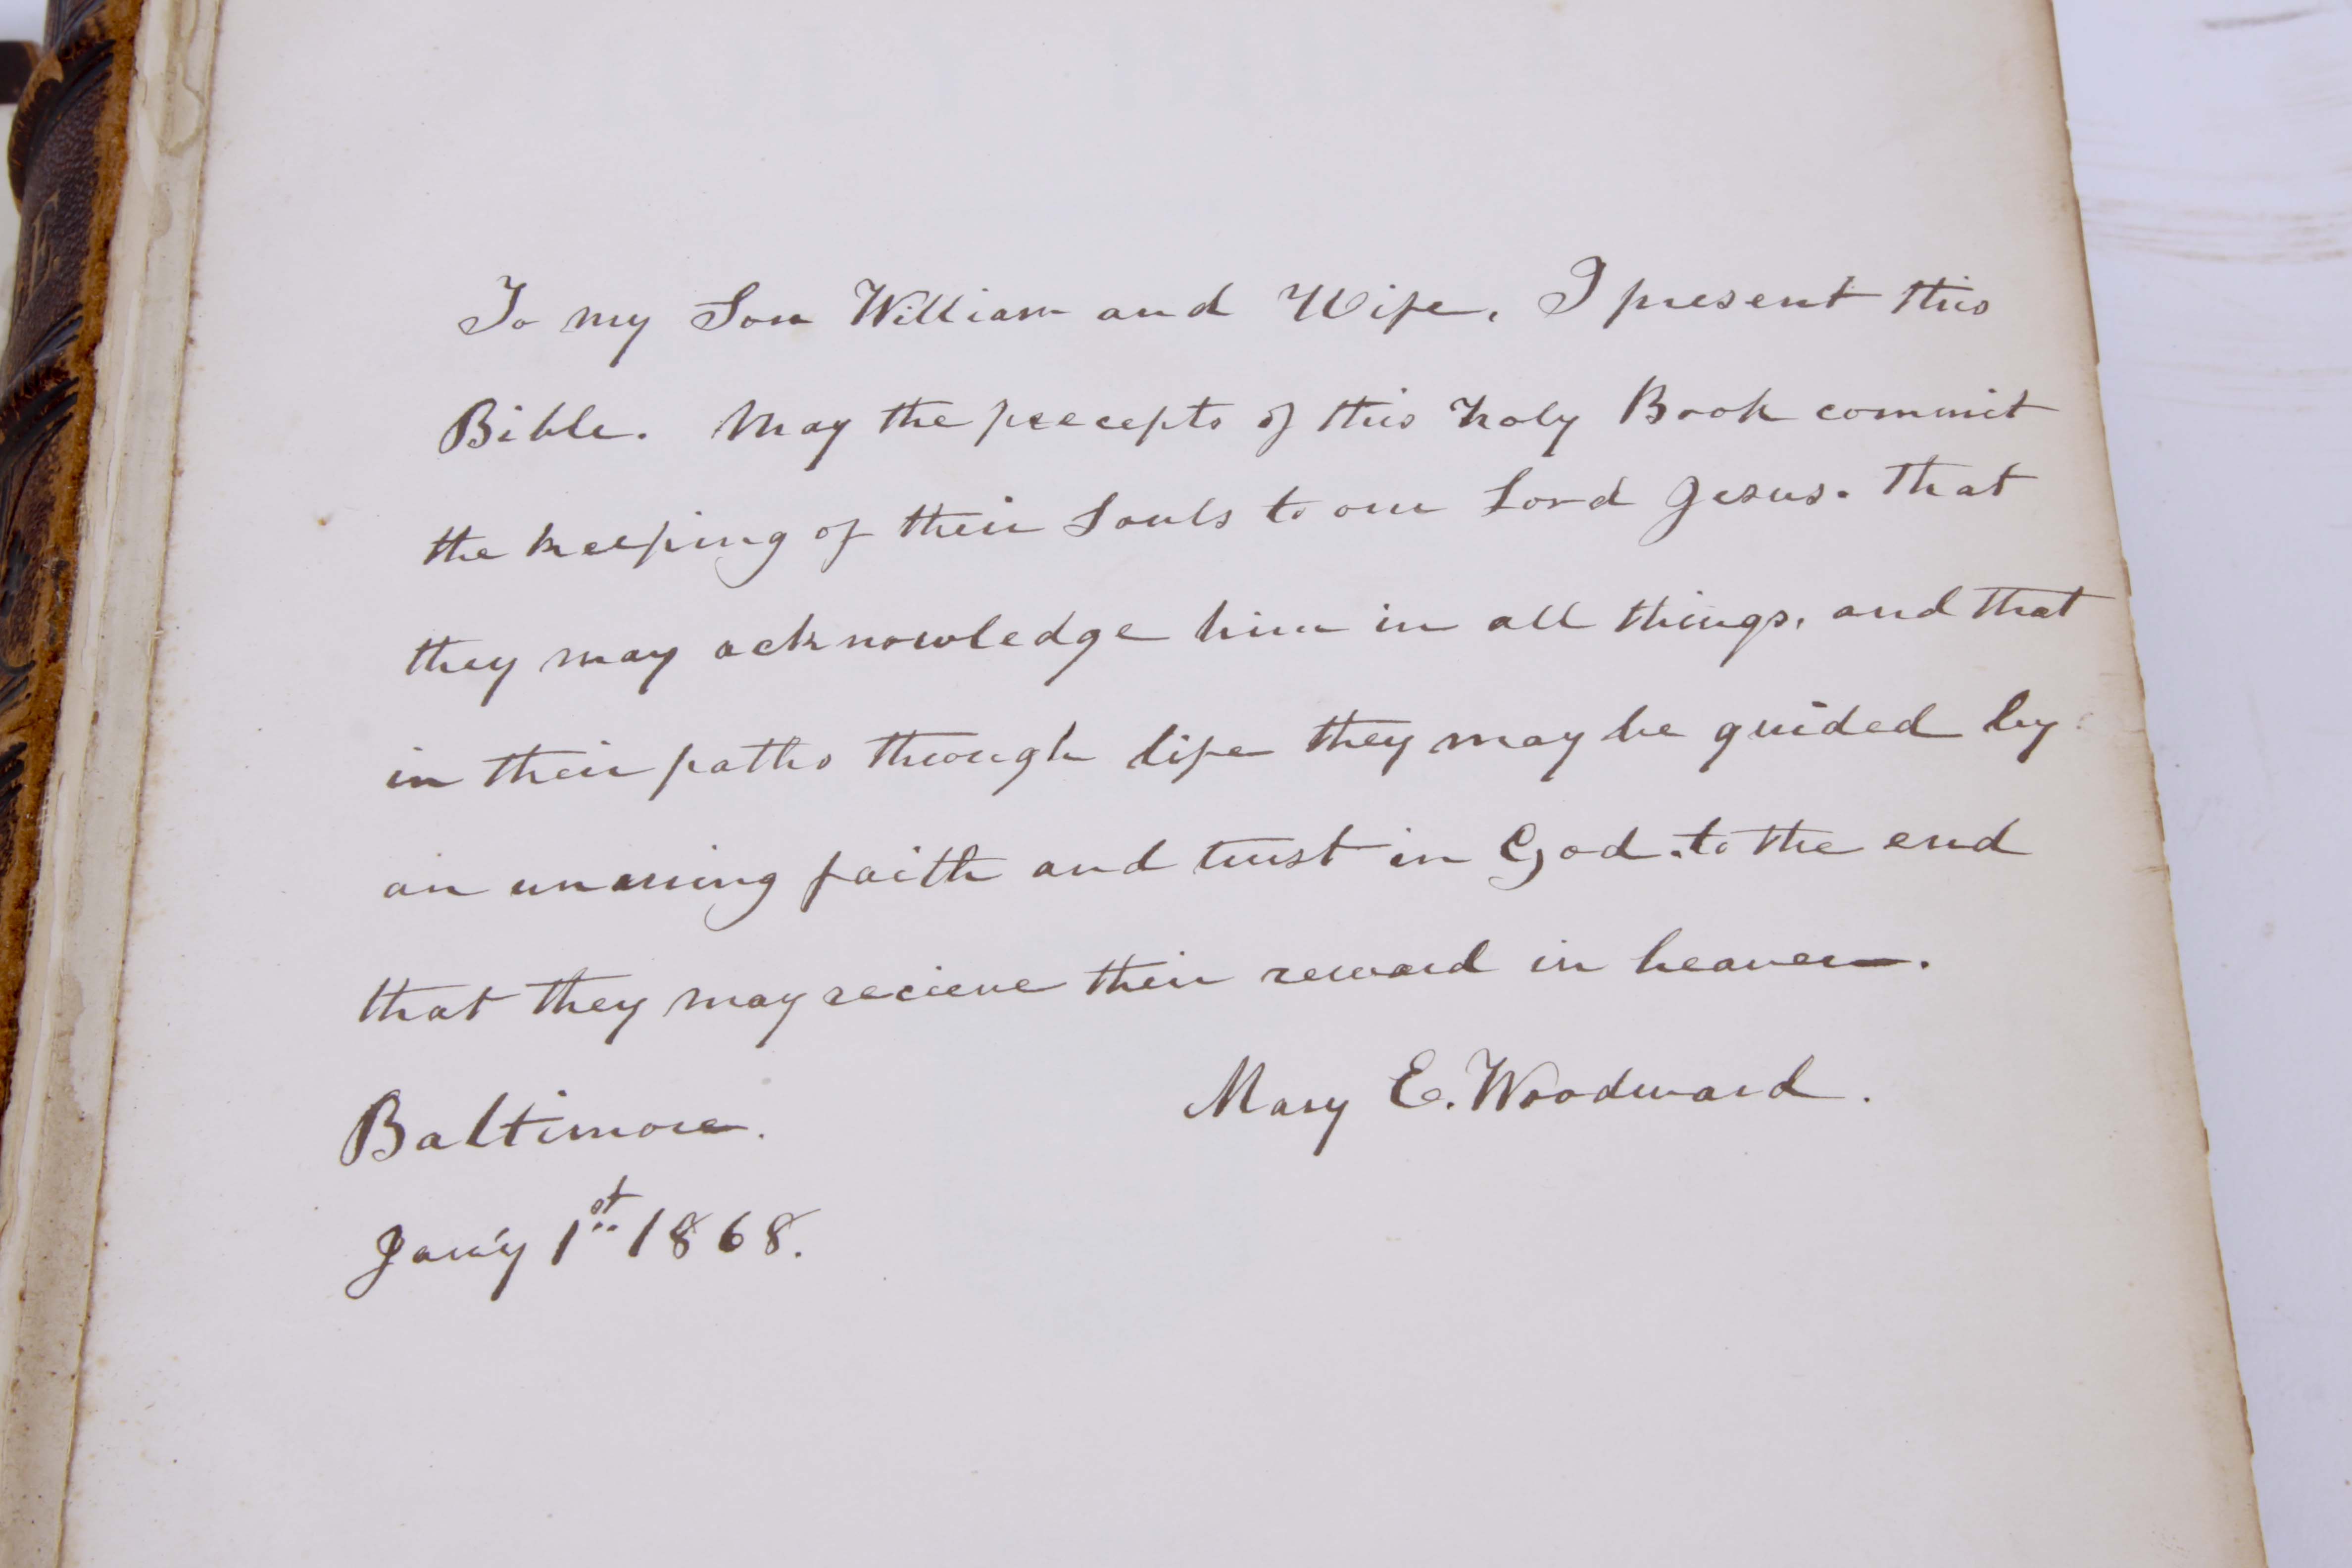 To my Son William and Wife, I present this
Bible. May the precepts of this holy Book commit
the keeping of their Souls to our Lord Jesus. That
they may acknowledge him in all things, and that
in their paths through life they may be guided by
an unerring faith and trust in God. to the end
that they may recieve their reward in heaven.
Mary E. Woodward.
Baltimore.
Jan'y 1st 1868.